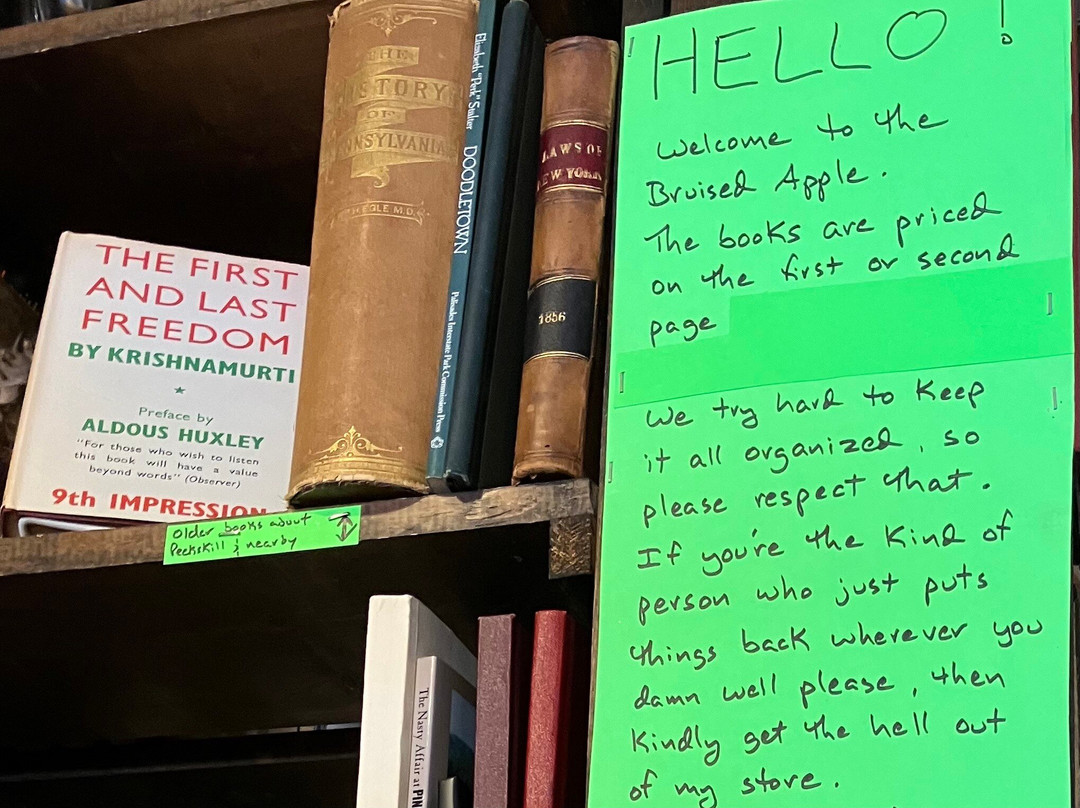 THE FIRST
AND LAST
FREEDOM
BY KRISHNAMURTI
Preface by
ALDOUS HUXLEY
"For those who wish to listen
this book will have a value
beyond words" (Observer)
9th IMPRESSION
THE
HISTORY
OF
PENNSYLVANIA
EGLE M.D.
Elizabeth "Perk" Stalter DOODLETOWN Palisades Interstate Park Commission Press
LAWS OF
NEW YORK
1856
Older books about
Peekskill & nearby
The Nasty Affair at PIN
HELLO!
Welcome to the
Bruised Apple.
The books are priced
on the first or second
page
We try hard to keep
it all organized, so
please respect that.
If you're the kind of
person who just puts
things back wherever you
damn well please, then
kindly get the hell out
of my store.